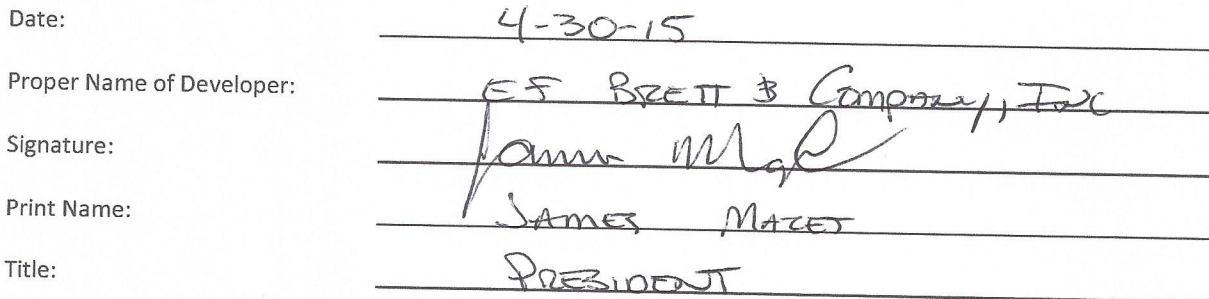 Date: 4-30-15
Proper Name of Developer: EF BRETT & Company, INC
Signature:
Print Name: JAMES MAZET
Title: PRESIDENT